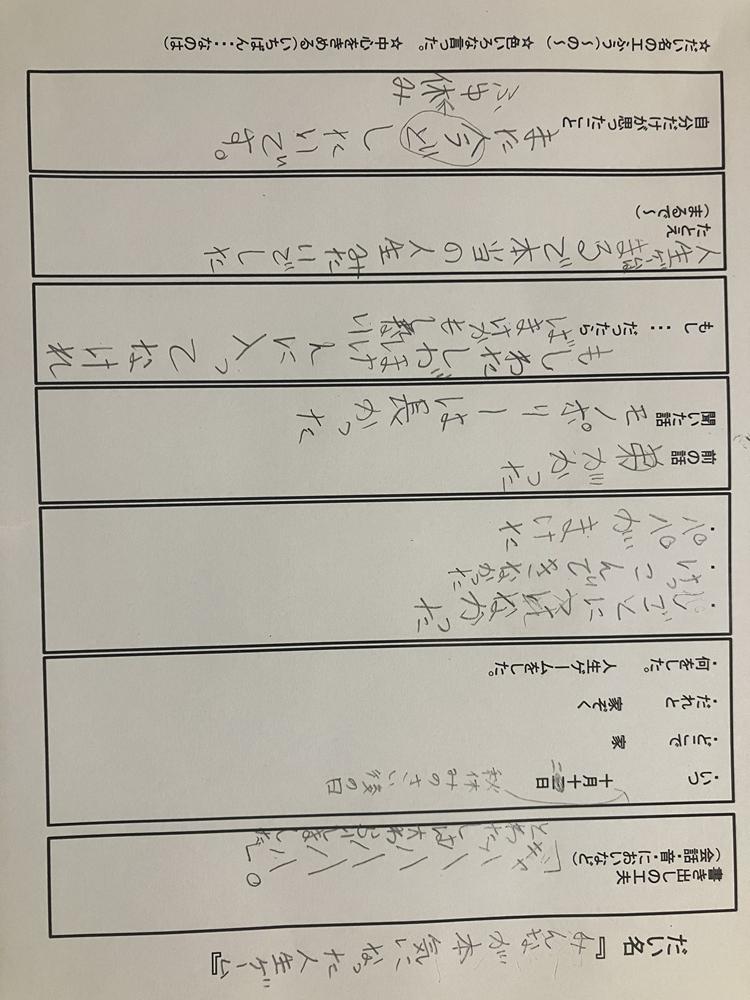 だい名『みんなが本気になった人生ゲーム』
書き出しの工夫
（会話・音・においなど）
「ギャハハハハハハ」。
とわたしは大わらいしました
・いつ　十月十二日
秋休みのさい後の日
・どこで　家
・だれと　家ぞく
・何をした。　人生ゲームをした。
・しごとにつけなかった
・けっこんできなかった
・パパがまけた
前の話　弟がかった
聞いた話　モノポリーは長かった
もし…だったら
もしわたしがほけんに入ってなけれ
ばまけかもしれない
たとえ
（まるで〜）
人生ゲームはまるで本当の人生みたいでした
自分だけが思ったこと
また今どしたいです。
ふゆ休み
☆だい名の工ふう（〜の〜）　☆色いろな言った。　☆中心をきめる（いちばん・・・なのは）